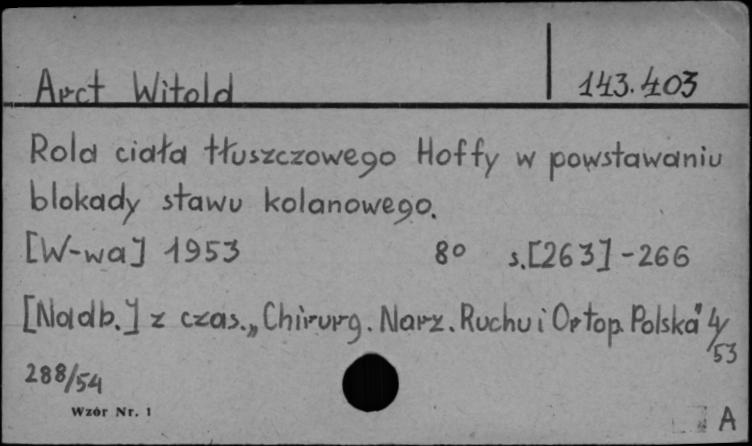 Arct Witold 143.403
Rola ciała tłuszczowego Hoffy w powstawaniu
blokady stawu kolanowego.
[W-wa] 1953 8° s.[263]-266
[Nadb.] z czas. „Chirurg. Narz. Ruchu i Ortop. Polska" 4/53
288/54
Wzór Nr. 1
A